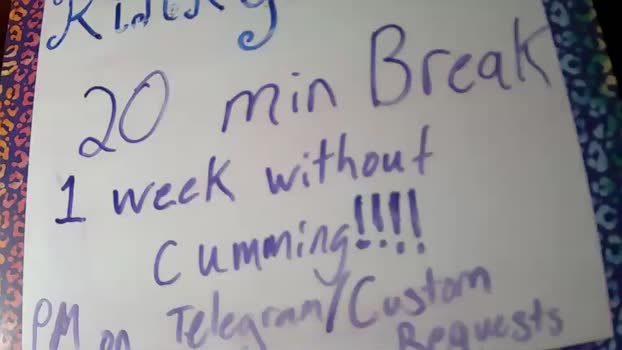 Kinky
20 min Break
1 week without
Cumming!!!!
PM on Telegram/Custom
Requests